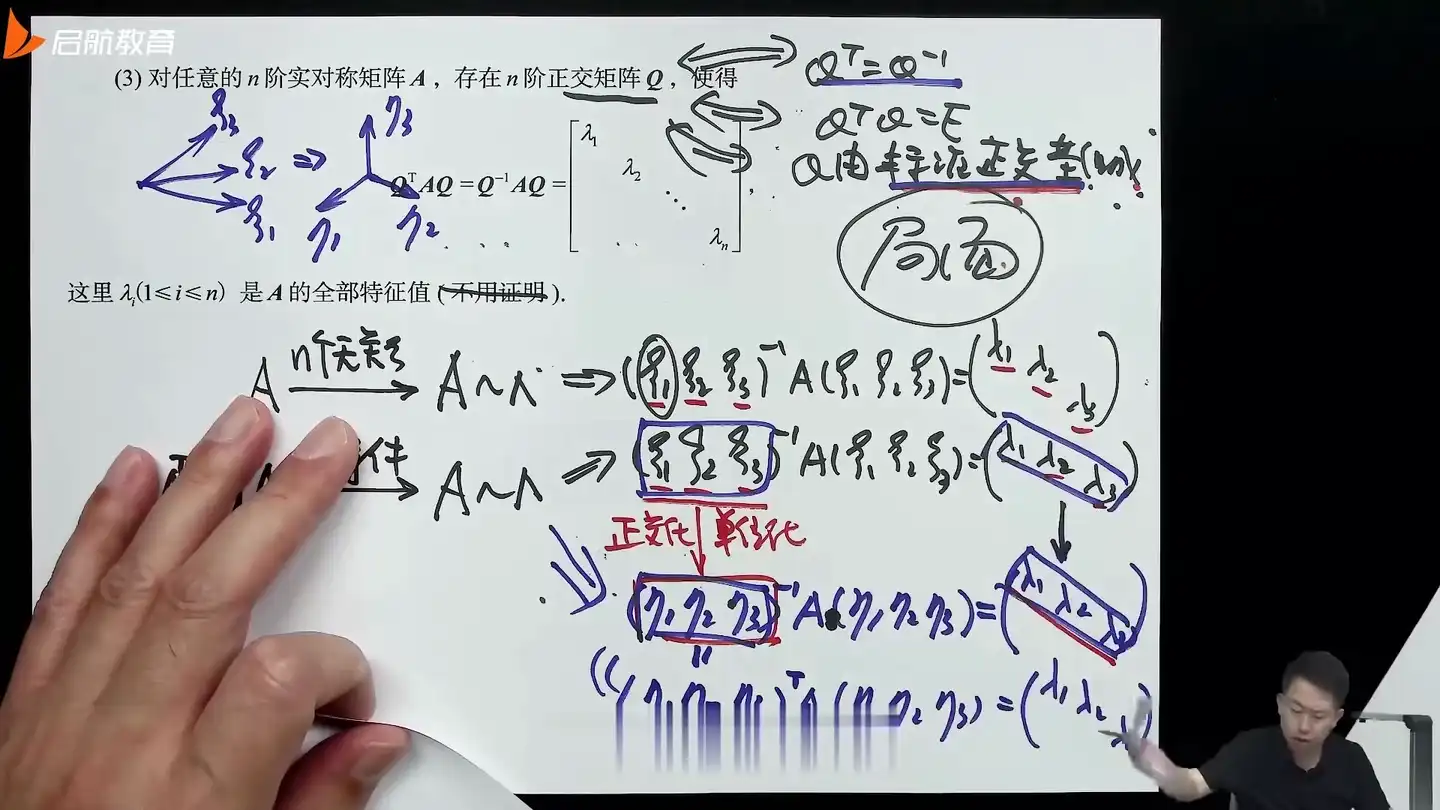 启航教育
(3) 对任意的 n 阶实对称矩阵 A ，存在 n 阶正交矩阵 Q ，使得
Qᵀ=Q⁻¹
QᵀQ=E
Q由 标准正交基
ξ₃
ξ₂ ⇒
ξ₁
η₃
η₁ η₂
QᵀAQ = Q⁻¹AQ = [λ₁ λ₂ ⋱ λₙ] ,
局面
这里 λᵢ(1≤i≤n) 是 A 的全部特征值 (不用证明).
A n个无关ξ → A~Λ ⇒ (ξ₁ ξ₂ ξ₃)⁻¹ A (ξ₁ ξ₂ ξ₃) = (λ₁ λ₂ λ₃)
A~Λ ⇒ (ξ₁ ξ₂ ξ₃)⁻¹ A (ξ₁ ξ₂ ξ₃) = (λ₁ λ₂ λ₃)
正交化 单位化
(η₁ η₂ η₃)⁻¹ A (η₁ η₂ η₃) = (λ₁ λ₂ λ₃)
(η₁ η₂ η₃)ᵀ A (η₁ η₂ η₃) = (λ₁ λ₂ λ